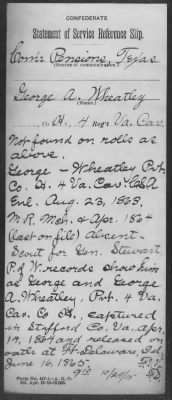 CONFEDERATE
Statement of Service Reference Slip.
Com'r Pensions, Texas
(Source of communication.)
George A. Wheatley
(Name.)
Co. H, 4 Reg't Va. Cav.
Not found on rolls as
above.
George - Wheatley Pvt.
Co. H. 4 Va. Cav. CSA
Enl. Aug. 23, 1863.
M.R. Mch. & Apr. 1864
(last on file) Absent.
Scout for Gen. Stewart.
P. of W. records show him
as George and George
A. Wheatley, Pvt. 4 Va.
Cav. Co. H., captured
in Stafford Co. Va. Apr.
19, 1864 and released on
oath at Ft. Delaware, Del.
June 16, 1865.